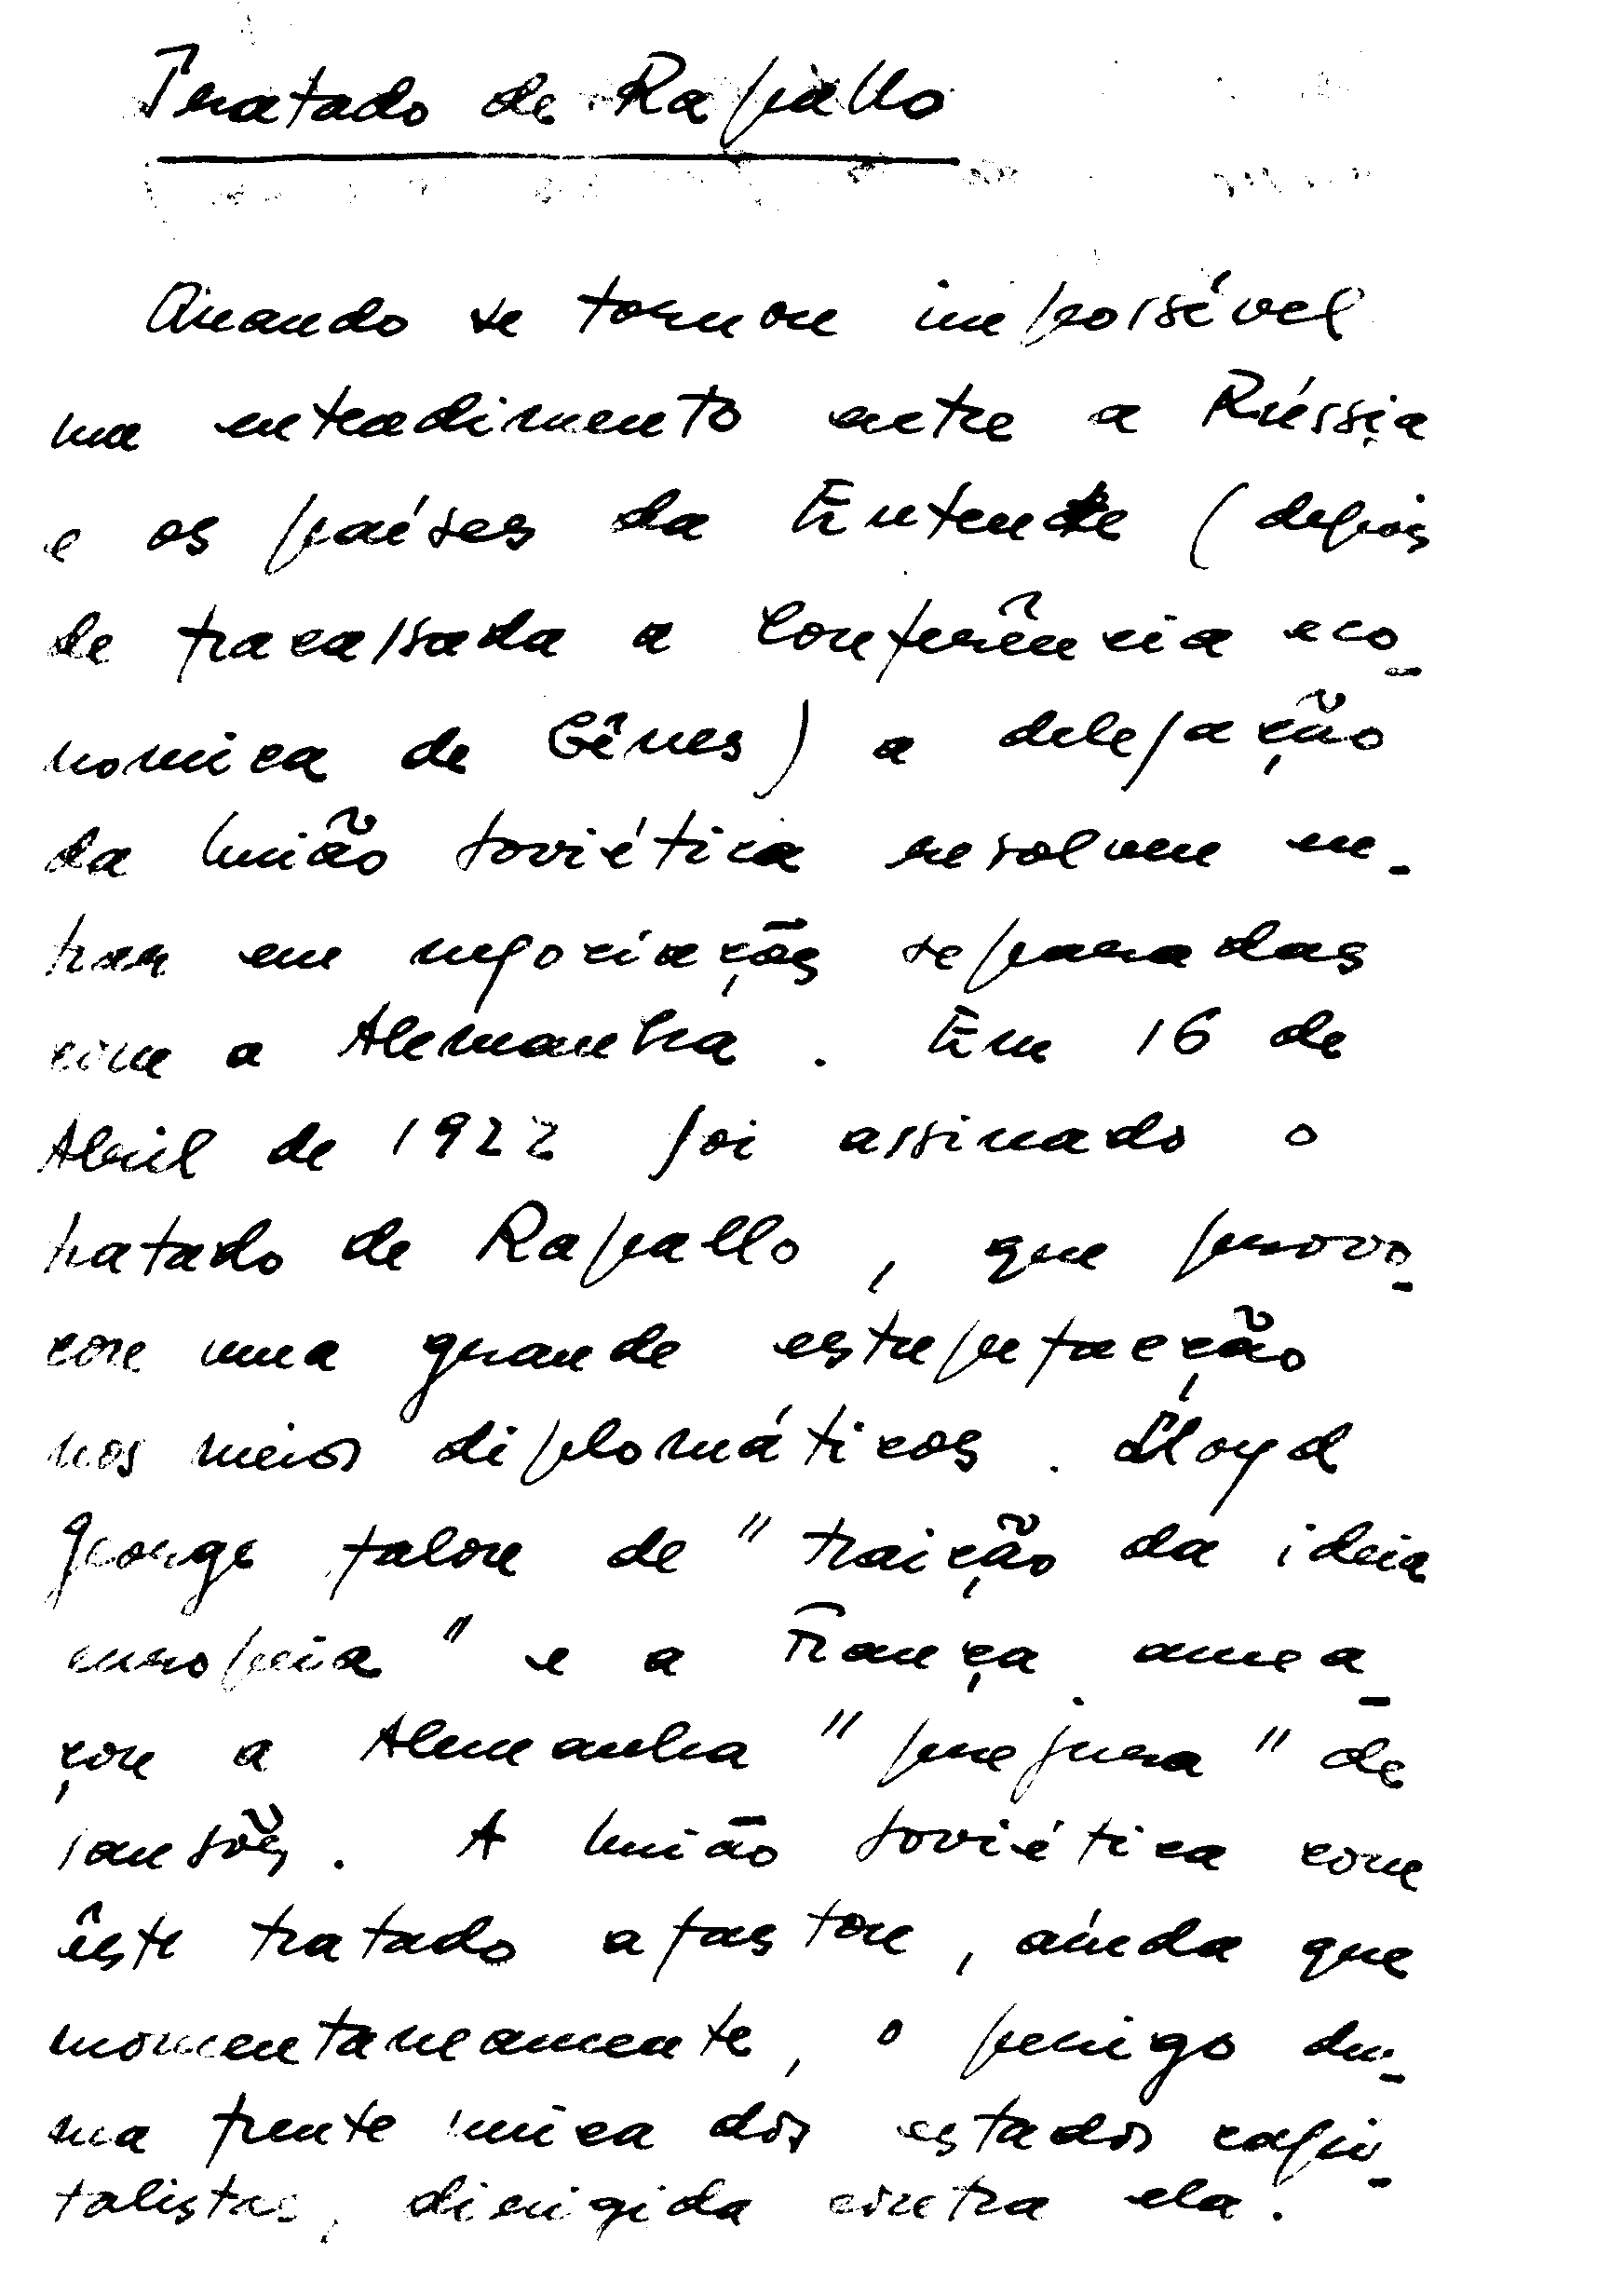 Tratado de Rapallo
Quando se tornou impossível
um entendimento entre a Rússia
e os países da Entente (depois
de fracassada a Conferência eco-
nomica de Gênes) a delegação
da União Soviética resolveu en-
trar em negociações separadas
com a Alemanha. Em 16 de
Abril de 1922 foi assinado o
tratado de Rapallo, que provo-
cou uma grande estupefacção
nos meios diplomáticos. Lloyd
George falou de "traição da ideia
europeia" e a França amea-
çou a Alemanha "prejura" de
sansões. A União Soviética com
êste tratado afastou, ainda que
momentaneamente, o perigo du-
ma frente unica dos estados capi-
talistas, dirigida contra ela.